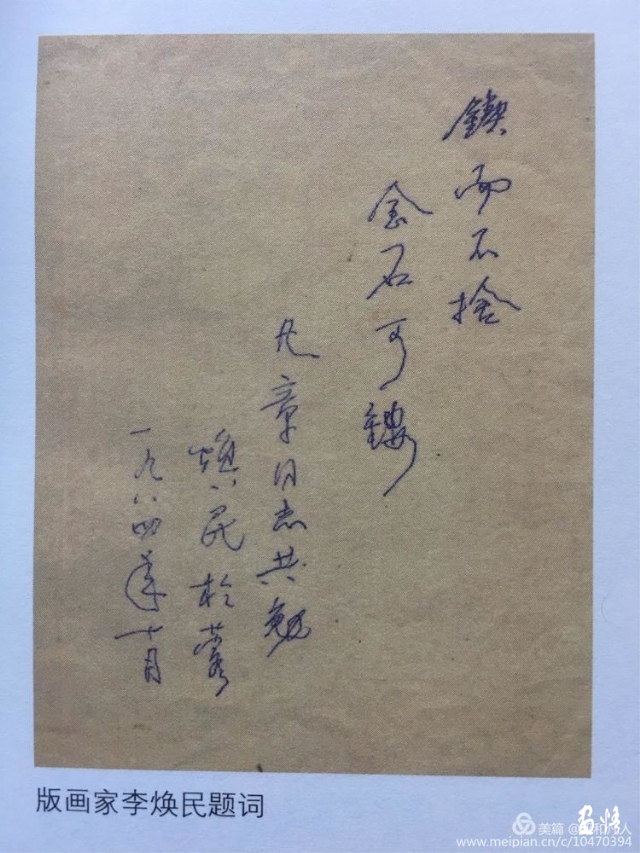 鍥而不捨
金石可鏤
凡章同志共勉
焕民於蓉
一九八四年十月
版画家李焕民题词
美篇 @和凡人
www.meipian.cn/c/10470394